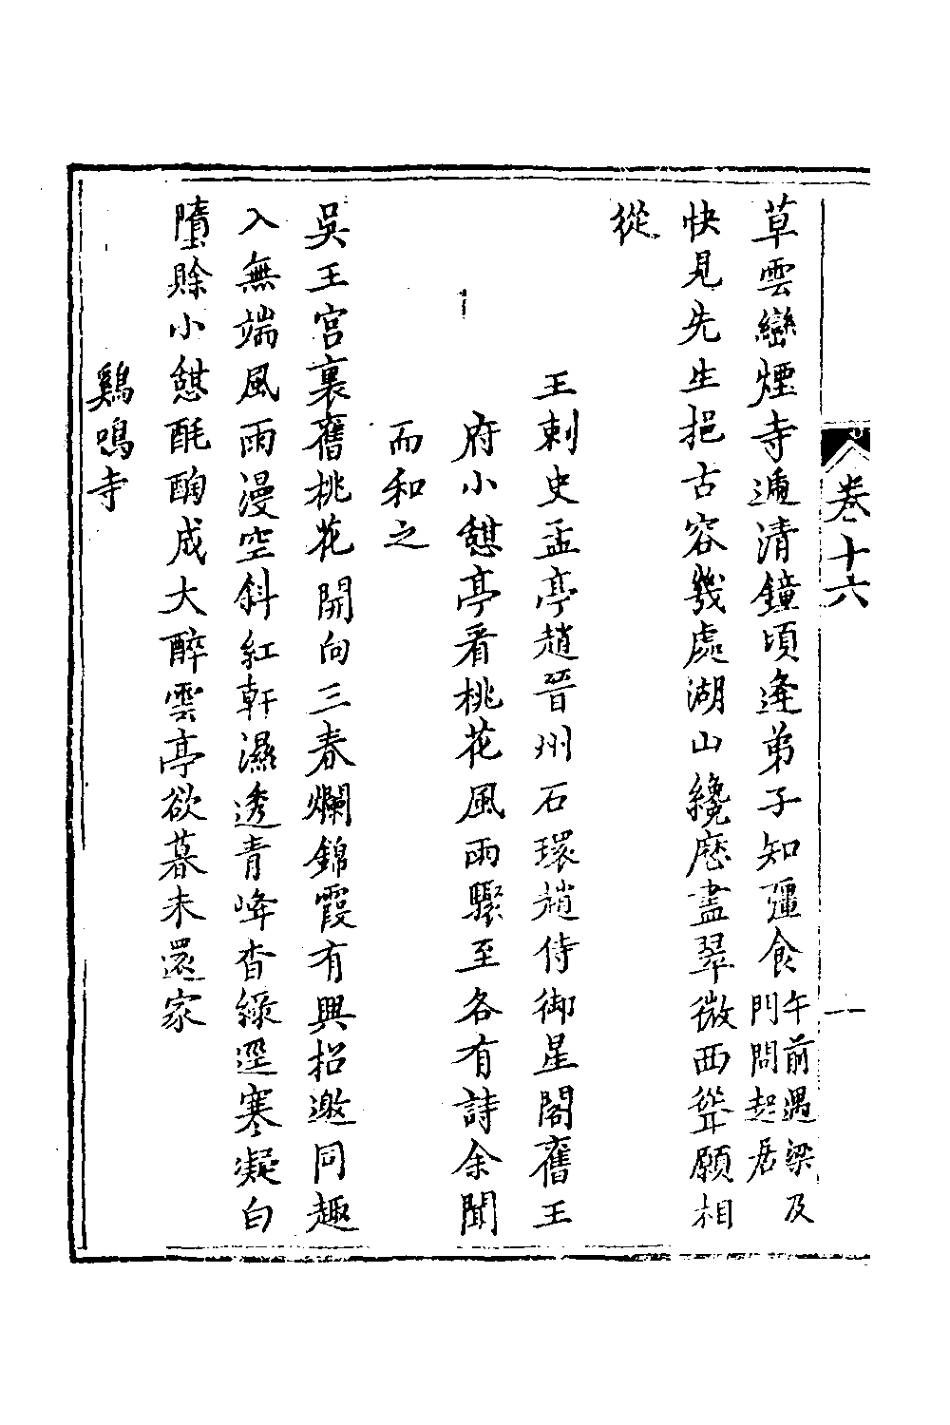 卷十六
一
草雲巒煙寺遞清鐘頃逢弟子知彊食午前遇梁及門問起居
快見先生挹古容幾處湖山纔歷盡翠微西聳願相
從
王刺史孟亭趙晉州石環趙侍御星閣舊王
府小憩亭看桃花風雨驟至各有詩余聞
而和之
吳王宮裏舊桃花開向三春爛錦霞有興招邀同趣
入無端風雨漫空斜紅軒濕透青峰杳綠逕寒凝白
墮賒小憩酕醄成大醉雲亭欲暮未還家
鷄鳴寺